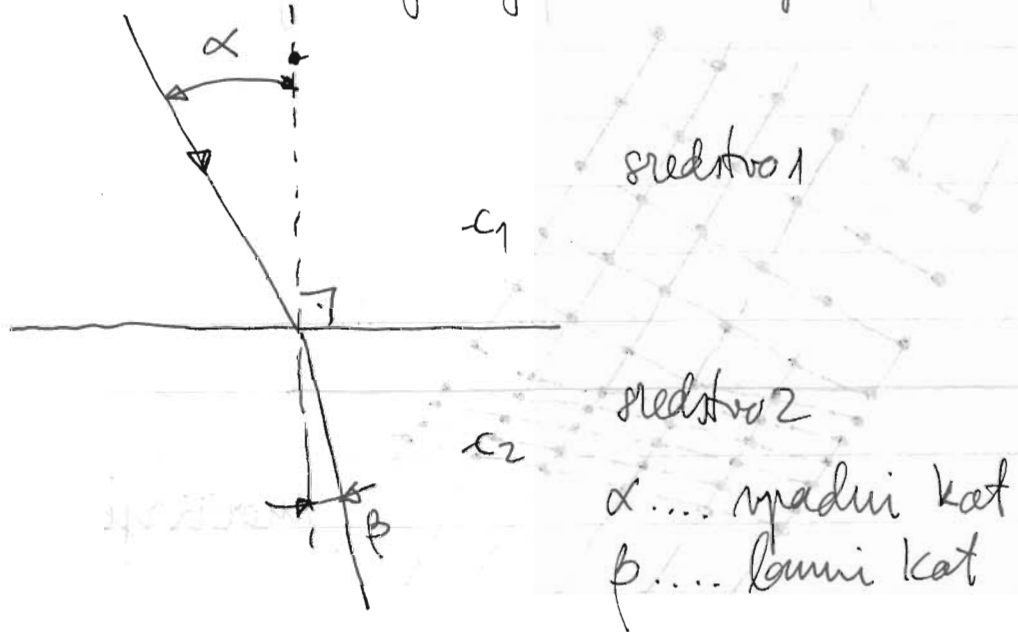 α
sredstvo 1
c₁
sredstvo 2
c₂
α.... vpadni kot
β
β.... lomni kot